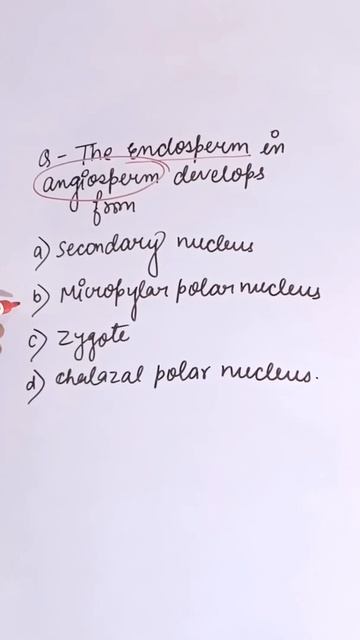 Q - The endosperm in
angiosperm develops
from
a) Secondary nucleus
b) Micropylar polar nucleus
c) Zygote
d) Chalazal polar nucleus.